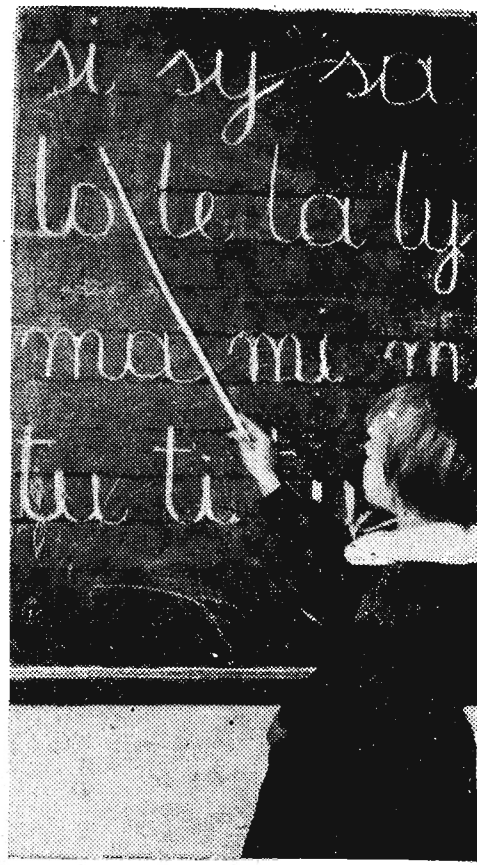 si sy sa
lo le la ly
ma mi
tu ti